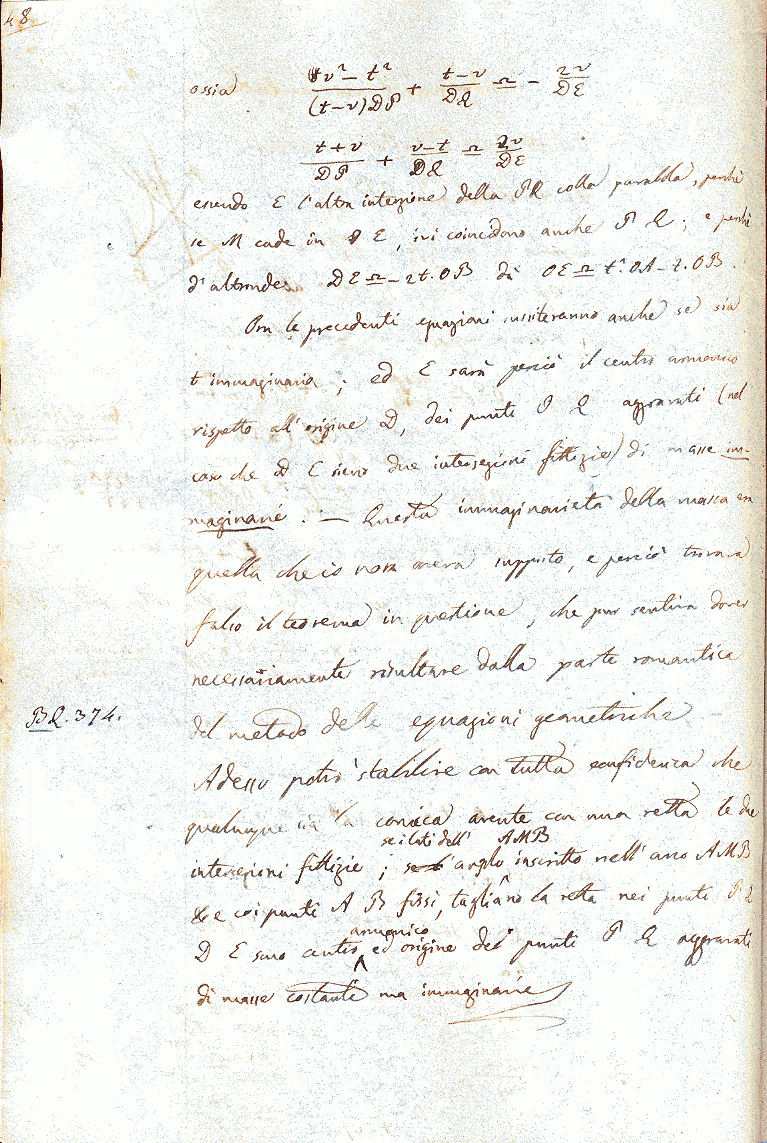 48
ossia (v² – t²)/((t–v)DP) + (t–v)/DQ ≏ – 2v/DE
(t+v)/DP + (v–t)/DQ ≏ 2v/DE
essendo E l'altra intersezione della PQ colla parabola, perchè
se M cade in E, ivi coincidono anche P Q ; e perchè
d'altronde DE ≏ – 2t.OB di OE ≏ t².OA – t.OB.
Ora le precedenti equazioni sussisteranno anche se sia
t immaginaria ; ed E sarà perciò il centro armonico
rispetto all'origine D, dei punti P Q aggravati (nel
caso che D E sieno due intersezioni fittizie) di masse im-
maginarie. — Questa immaginarietà della massa era
quella che io non aveva supposto, e perciò trovava
falso il teorema in questione, che pur sentiva dover
necessariamente risultare dalla parte romantica
BQ. 374.
del metodo delle equazioni geometriche
Adesso potrò stabilire con tutta confidenza che
qualunque sia la conica avente con una retta le due
intersezioni fittizie ; se i lati dell' angolo AMB inscritto nell'arco AMB
e coi punti A B fissi, tagliano la retta nei punti P Q
D E sono centro armonico ed origine dei punti P Q aggravati
di masse costanti ma immaginarie